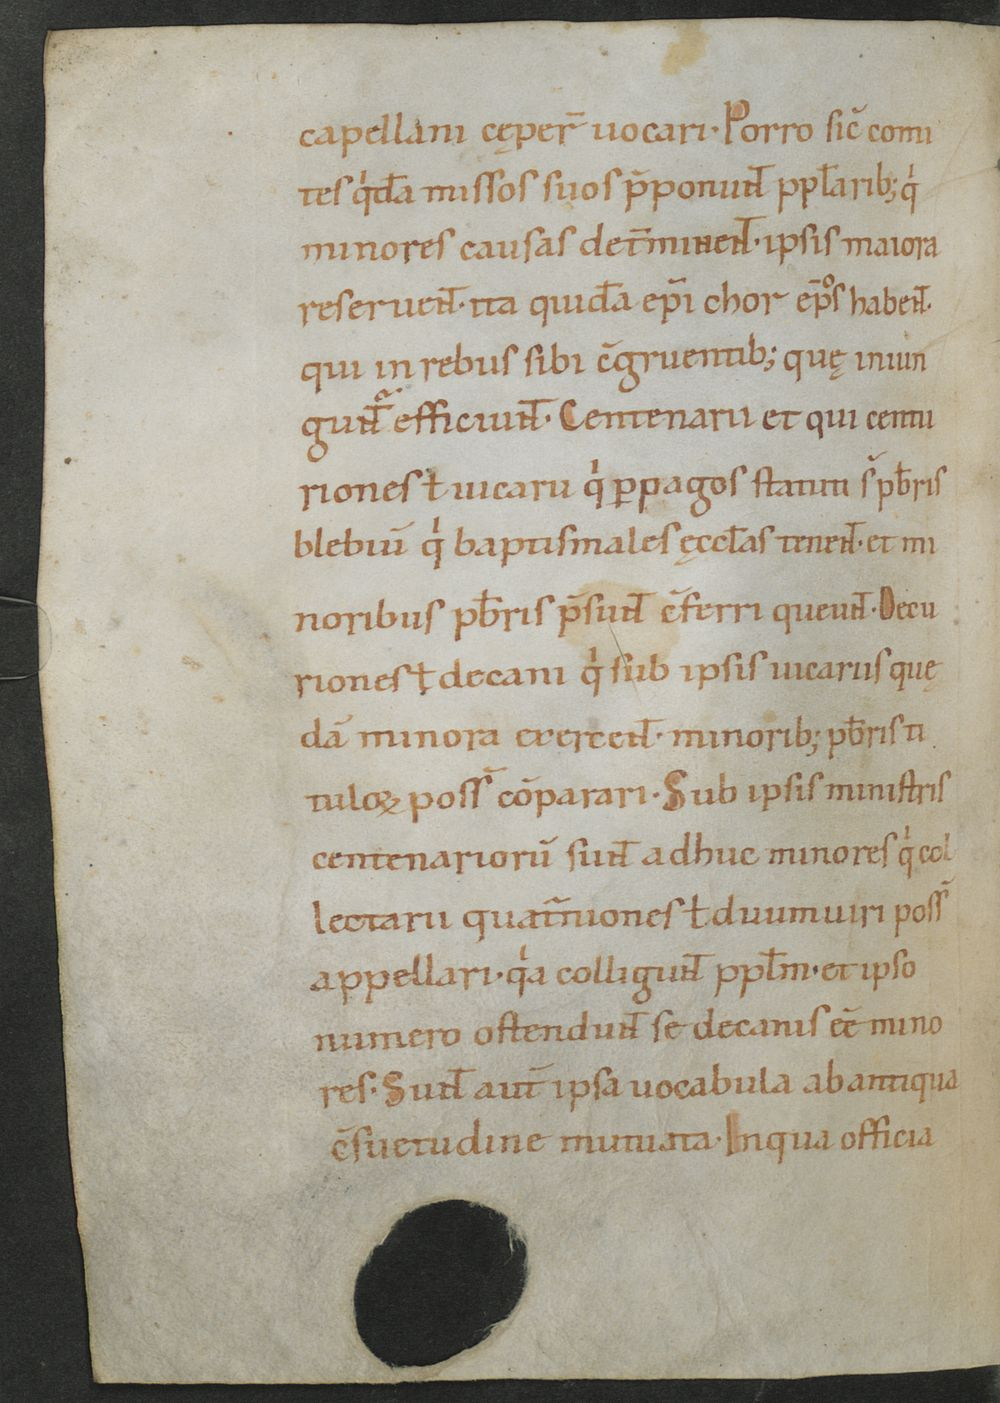 capellani cęper̄ uocari· Porro sic̄ comi
tes qͥda missos suos p̄ponunt̄ ppl̄arib; qͥ
minores causas det̄minent̄· ipsis maiora
reseruent̄· ita quida ep̄i chor ep̄oˢ habent̄·
qui in rebus sibi c̄gruentib; quę iniun
gunt̄ᵃ efficiunt̄· Centenarii et qui centu
riones ł uicarii qͥ p̱pagos statuti s̄ pb̄ris
blebiū qͥ baptismales ęccl̄as tenent̄· et mi
noribus pb̄ris p̄sunt̄ c̄ferri queunt̄· Decu
riones ł decani qͥ sub ipsis uicariis quę
dā minora exercent̄· minorib; pb̄ris ti
tuloꝝ poss̄ cōparari· Sub ipsis ministris
centenariorū sunt̄ adhuc minores qͥ col
lectarii quat̄niones ł duumuiri poss̄
appellari· qͥa colligunt̄ ppl̄m· et ipso
numero ostendunt̄ se decanis eē mino
res· Sunt̄ aut̄ ipsa uocabula ab antiqua
c̄suetudine mutuata· In qua officia